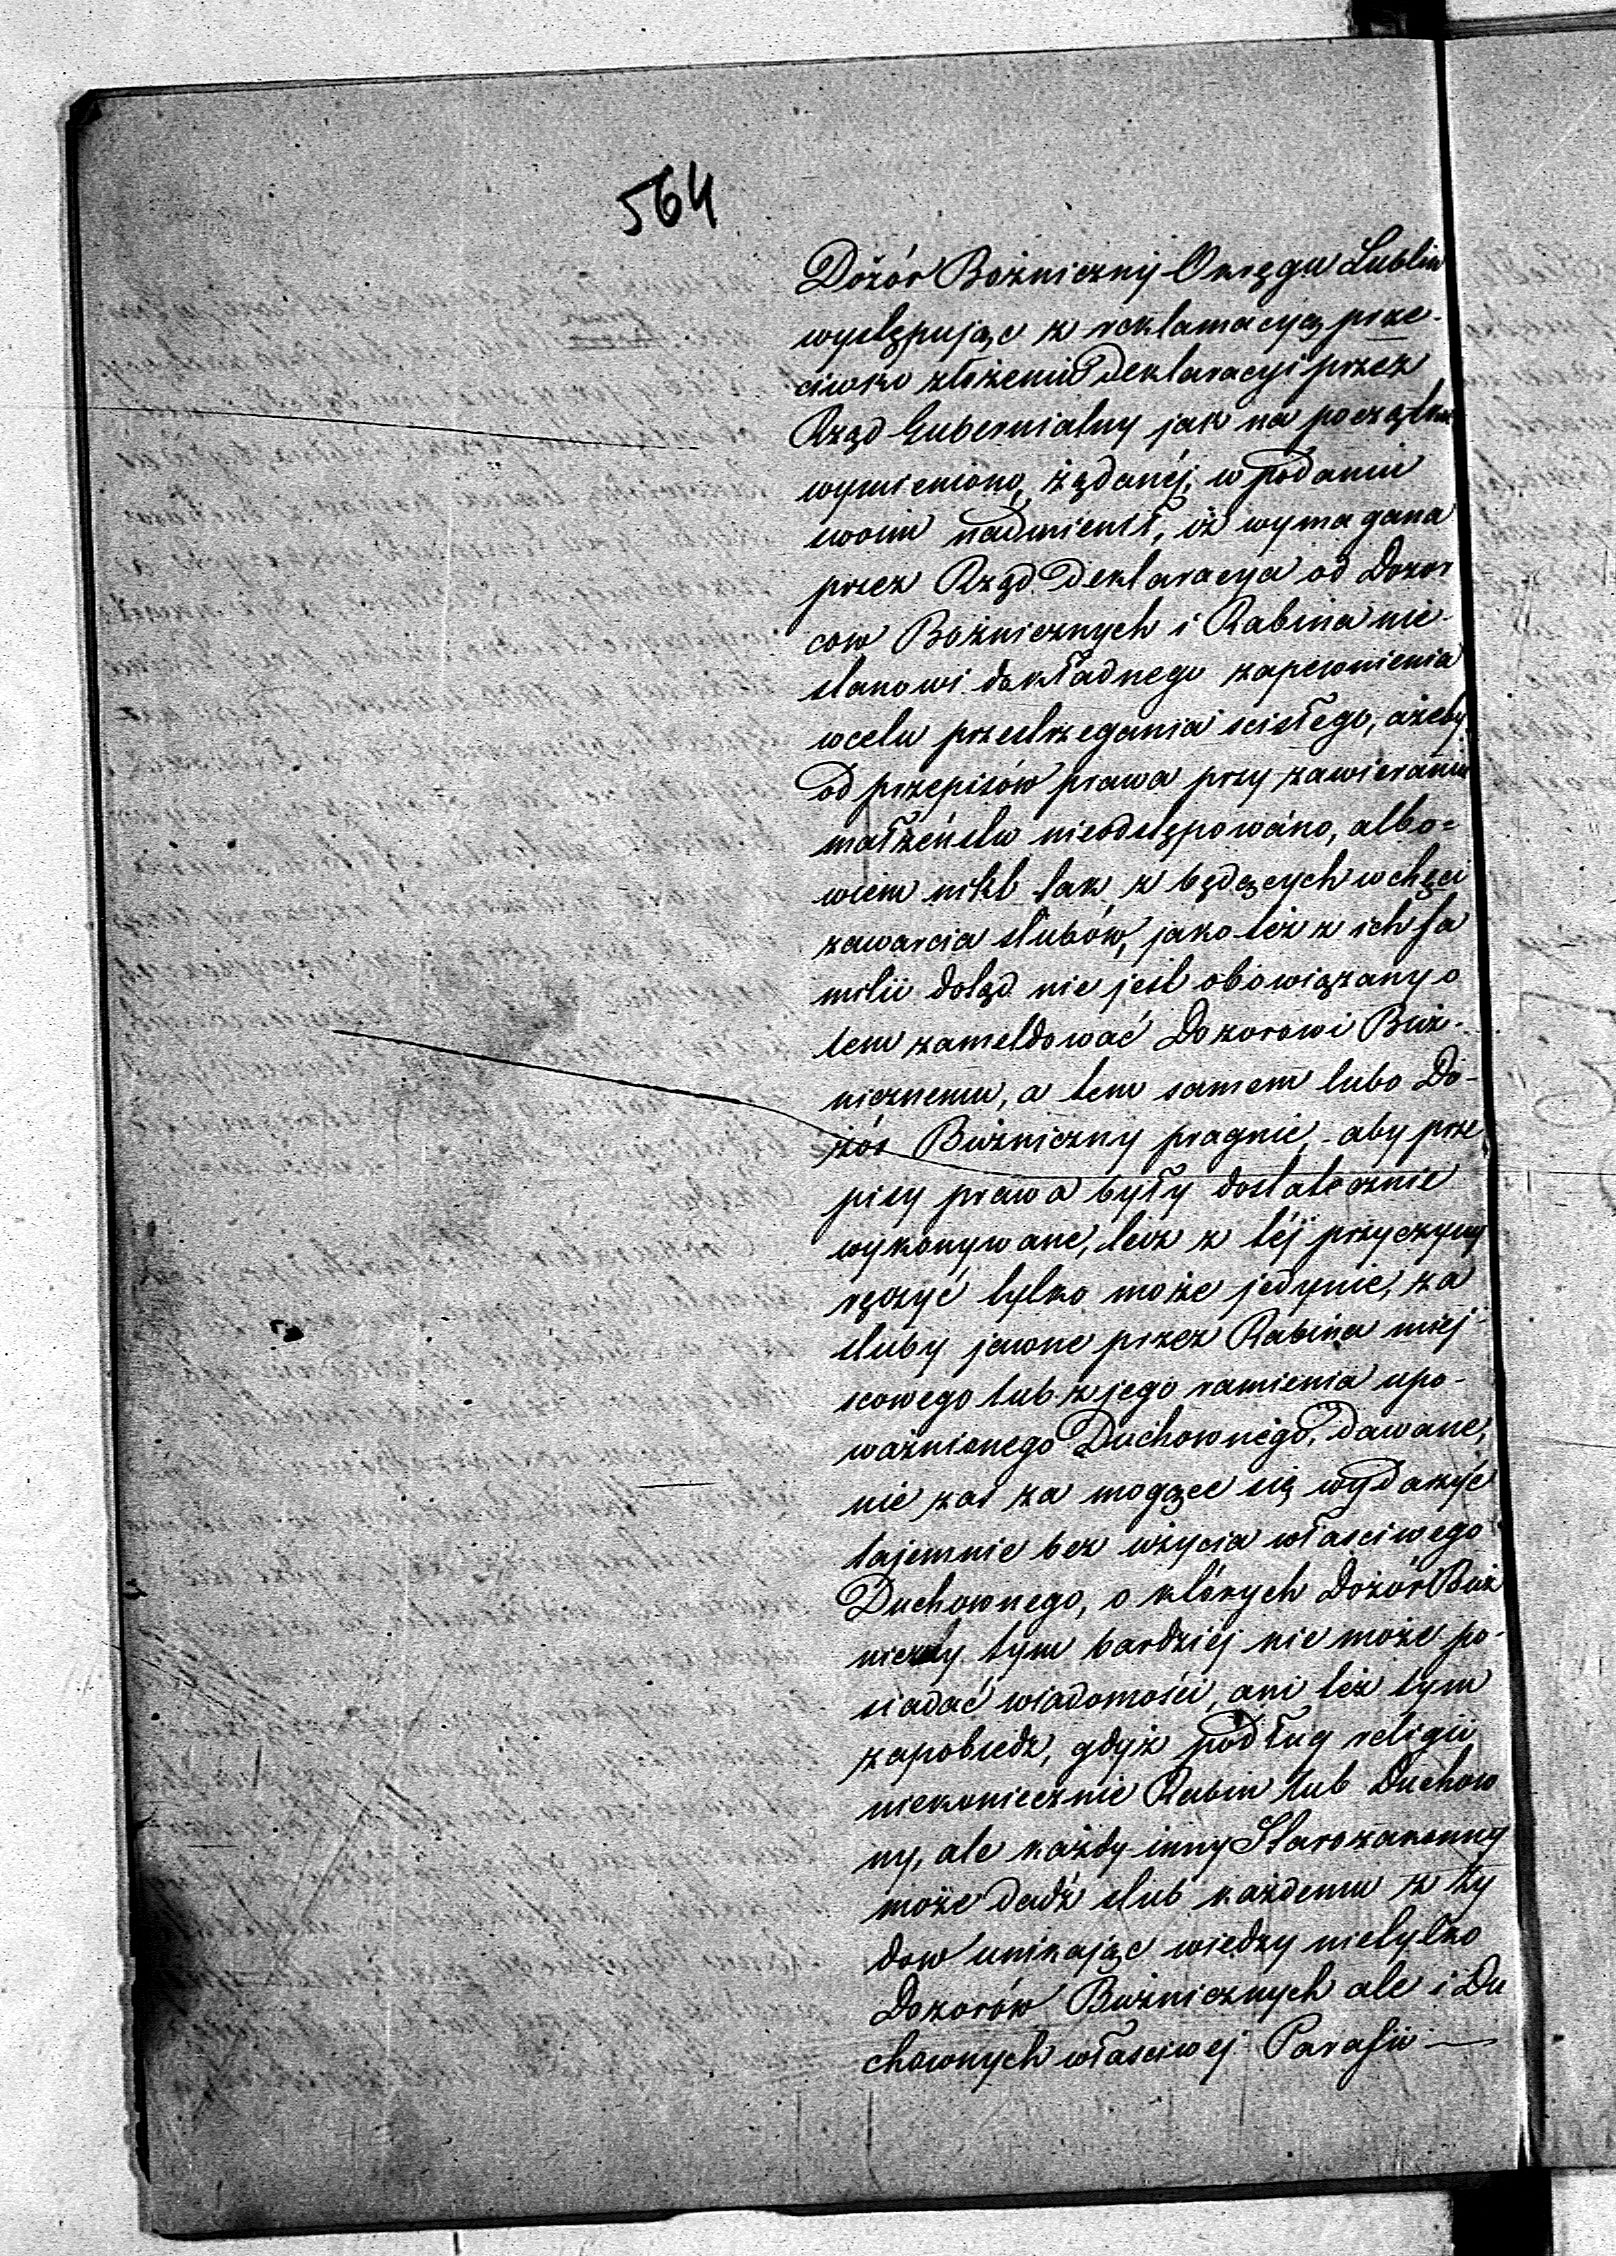 564
Dozór Bożniczny Okręgu Lublin
występując z reklamacyą prze-
ciwko złożeniu Deklaracyi przez
Rząd Gubernialny jak na początku
wymieniono, żądanéj, w podaniu
swoim nadmienił, iż wymagana
przez Rząd Deklaracya od Dozor
cow Bożnicznych i Rabina nie-
stanowi dokładnego zapewnienia
wcelu przestrzegania scisłego, ażeby
od przepisów prawa przy zawieraniu
małżeństw nieodstępowano, albo=
wiem nikt tak z będących w chęci
zawarcia slubów, jako też z ich fa
milii dotąd nie jest obowiązany o
tem zameldować Dozorowi Buż-
nicznemu, a tem samem lubo Do-
zór Bużniczny pragnie, aby prze
pisy prawa były dostatecznie
wykonywane, lecz z téj przyczyny
ręczyć tylko może jedynie, za
sluby jawne przez Rabina miej-
scowego lub z jego ramienia upo-
ważnionego Duchownego, dawane,
nie zas za mogące się wydażyć
tajemnie bez użycia własciwego
Duchownego, o których Dozór Buż
niczny tym bardziej nie może po-
siadać wiadomości, ani też tym
zapobiedz, gdyż podług religii
niekoniecznie Rabin lub Duchow
ny, ale każdy inny Starozakonny
może dadź slub każdemu z Ży
dow unikając wiedzy nietylko
Dozorów Bużnicznych ale i Du
chownych własciwej Parafii —